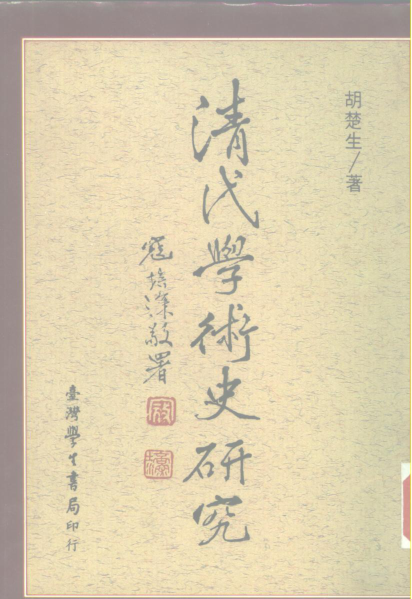 胡楚生/著
清代學術史研究
寇培深敬署
臺灣學生書局印行